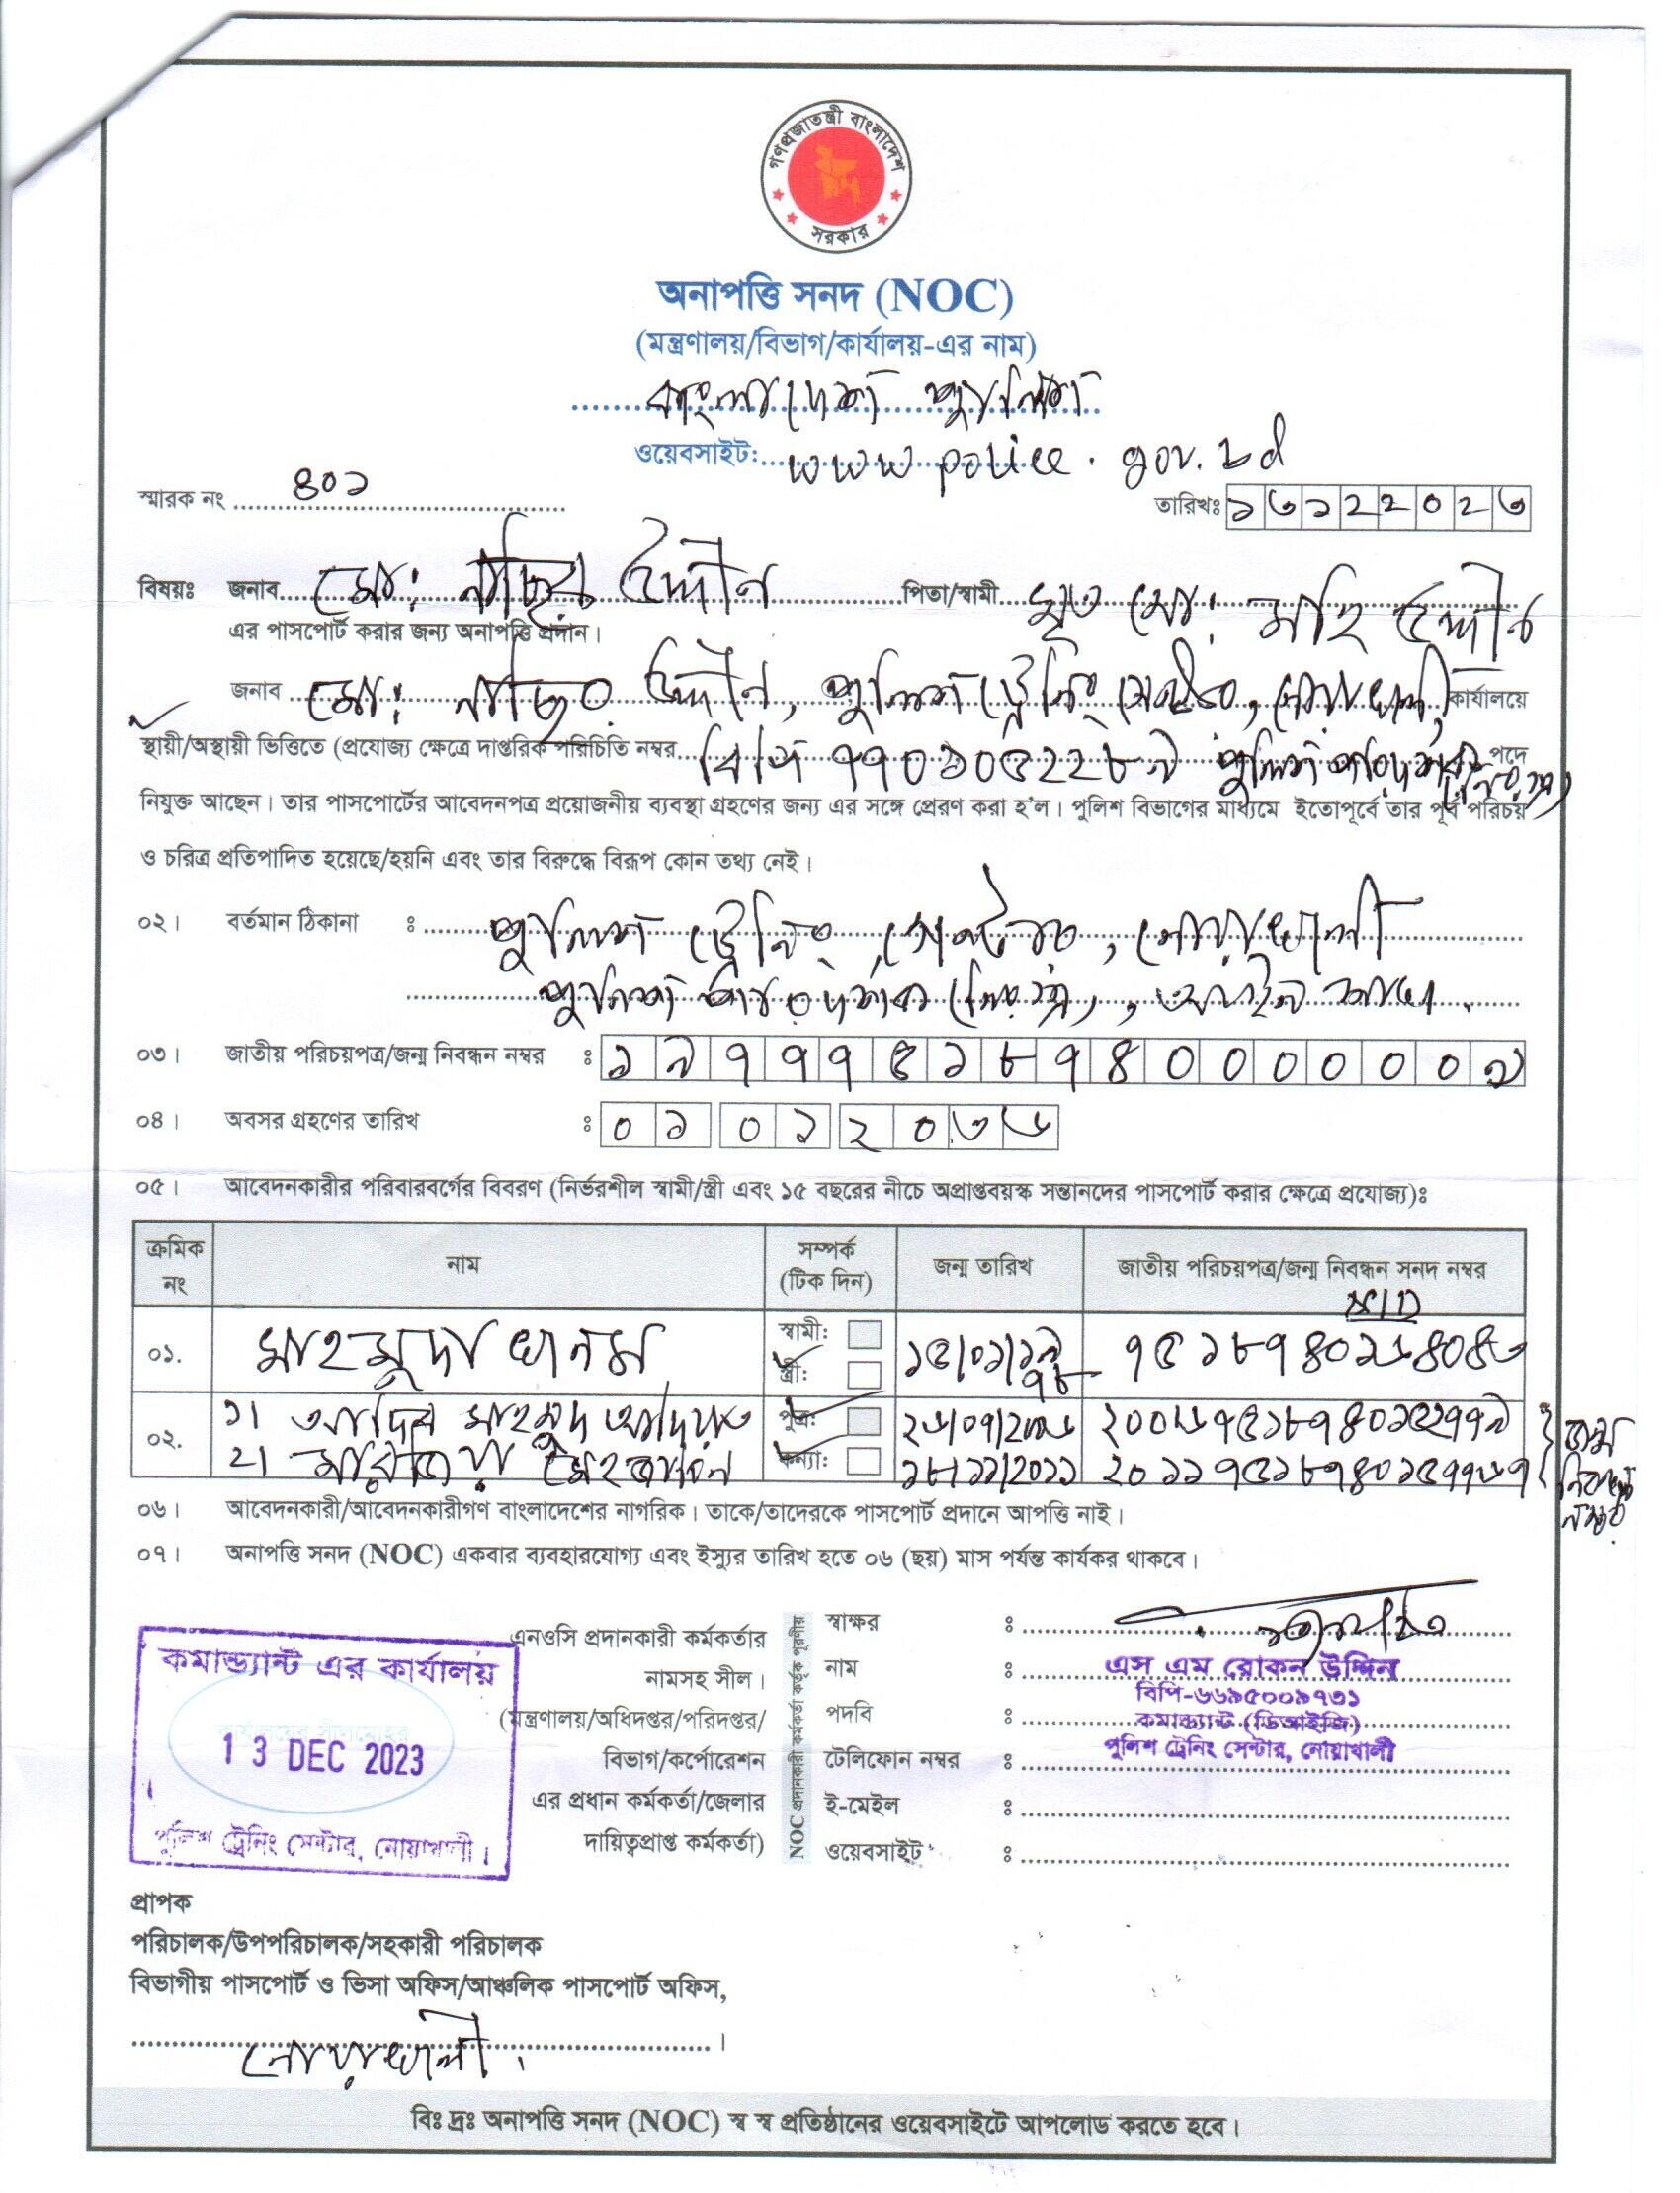 গণপ্রজাতন্ত্রী বাংলাদেশ
সরকার
অনাপত্তি সনদ (NOC)
(মন্ত্রণালয়/বিভাগ/কার্যালয়-এর নাম)
বাংলাদেশ পুলিশ
ওয়েবসাইট: www.police.gov.bd
স্মারক নং ৪০১
তারিখঃ ১৩১২২০২৩
বিষয়ঃ জনাব মো: নাছির উদ্দীন পিতা/স্বামী মৃত মো: মহি উদ্দীন
এর পাসপোর্ট করার জন্য অনাপত্তি প্রদান।
জনাব মো: নাছির উদ্দীন, পুলিশ ট্রেনিং সেন্টার, নোয়াখালী কার্যালয়ে
স্থায়ী/অস্থায়ী ভিত্তিতে (প্রযোজ্য ক্ষেত্রে দাপ্তরিক পরিচিতি নম্বর বিপি ৭৭০১০৫২২৮৯ পুলিশ পরিদর্শক (নিরস্ত্র) পদে
নিযুক্ত আছেন। তার পাসপোর্টের আবেদনপত্র প্রয়োজনীয় ব্যবস্থা গ্রহণের জন্য এর সঙ্গে প্রেরণ করা হ'ল। পুলিশ বিভাগের মাধ্যমে ইতোপূর্বে তার পূর্ব পরিচয়
ও চরিত্র প্রতিপাদিত হয়েছে/হয়নি এবং তার বিরুদ্ধে বিরূপ কোন তথ্য নেই।
০২। বর্তমান ঠিকানা : পুলিশ ট্রেনিং সেন্টার, নোয়াখালী
পুলিশ পরিদর্শক (নিরস্ত্র),
০৩। জাতীয় পরিচয়পত্র/জন্ম নিবন্ধন নম্বর : ১৯৭৭৭৫১৮৭৪০০০০০০৯
০৪। অবসর গ্রহণের তারিখ : ০১ ০১ ২০৩৬
০৫। আবেদনকারীর পরিবারবর্গের বিবরণ (নির্ভরশীল স্বামী/স্ত্রী এবং ১৫ বছরের নীচে অপ্রাপ্তবয়স্ক সন্তানদের পাসপোর্ট করার ক্ষেত্রে প্রযোজ্য)ঃ
ক্রমিক নং নাম সম্পর্ক (টিক দিন) জন্ম তারিখ জাতীয় পরিচয়পত্র/জন্ম নিবন্ধন সনদ নম্বর
NID
০১. মাহমুদা খানম স্বামী: স্ত্রী: ১৫/০১/১৯৭৮ ৭৫১৮৭৪০১৬৪০৪৩
০২. ১। আদিব মাহমুদ আদিয়াত পুত্র: ২৬/০৭/২০০৬ ২০০৬৭৫১৮৭৪০১৫২৭৭৯
২। মারজিয়া মেহজাবিন কন্যা: ১৮/১১/২০১১ ২০১১৭৫১৮৭৪০১৫৭৭৬৭
জন্ম
নিবন্ধন
নম্বর
০৬। আবেদনকারী/আবেদনকারীগণ বাংলাদেশের নাগরিক। তাকে/তাদেরকে পাসপোর্ট প্রদানে আপত্তি নাই।
০৭। অনাপত্তি সনদ (NOC) একবার ব্যবহারযোগ্য এবং ইস্যুর তারিখ হতে ০৬ (ছয়) মাস পর্যন্ত কার্যকর থাকবে।
কমান্ড্যান্ট এর কার্যালয়
কার্যালয়ের সীলমোহর
13 DEC 2023
পুলিশ ট্রেনিং সেন্টার, নোয়াখালী।
এনওসি প্রদানকারী কর্মকর্তার
নামসহ সীল।
(মন্ত্রণালয়/অধিদপ্তর/পরিদপ্তর/
বিভাগ/কর্পোরেশন
এর প্রধান কর্মকর্তা/জেলার
দায়িত্বপ্রাপ্ত কর্মকর্তা)
NOC প্রদানকারী কর্মকর্তা কর্তৃক পূরণীয়
স্বাক্ষর :
নাম : এস এম রোকন উদ্দিন
বিপি-৬৬৯৫০০৯৭৩১
পদবি : কমান্ড্যান্ট (ডিআইজি)
পুলিশ ট্রেনিং সেন্টার, নোয়াখালী
টেলিফোন নম্বর :
ই-মেইল :
ওয়েবসাইট :
প্রাপক
পরিচালক/উপপরিচালক/সহকারী পরিচালক
বিভাগীয় পাসপোর্ট ও ভিসা অফিস/আঞ্চলিক পাসপোর্ট অফিস,
নোয়াখালী।
বিঃ দ্রঃ অনাপত্তি সনদ (NOC) স্ব স্ব প্রতিষ্ঠানের ওয়েবসাইটে আপলোড করতে হবে।